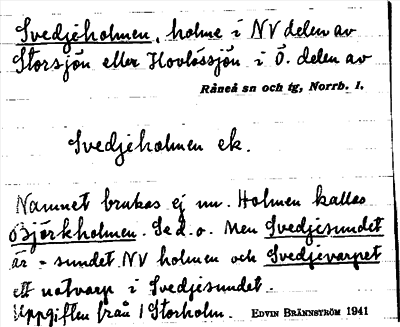 Svedjeholmen, holme i NV delen av
Storsjön eller Hovlössjön i Ö. delen av
Råneå sn och tg, Norrb. l.
Svedjeholmen ek.
Namnet brukas ej nu. Holmen kallas
Björkholmen. Se d. o. Men Svedjesundet
är - sundet NV holmen och Svedjevarpet
ett notvarp i Svedjesundet.
Uppgiften från 1 Storholm. EDVIN BRÄNNSTRÖM 1941